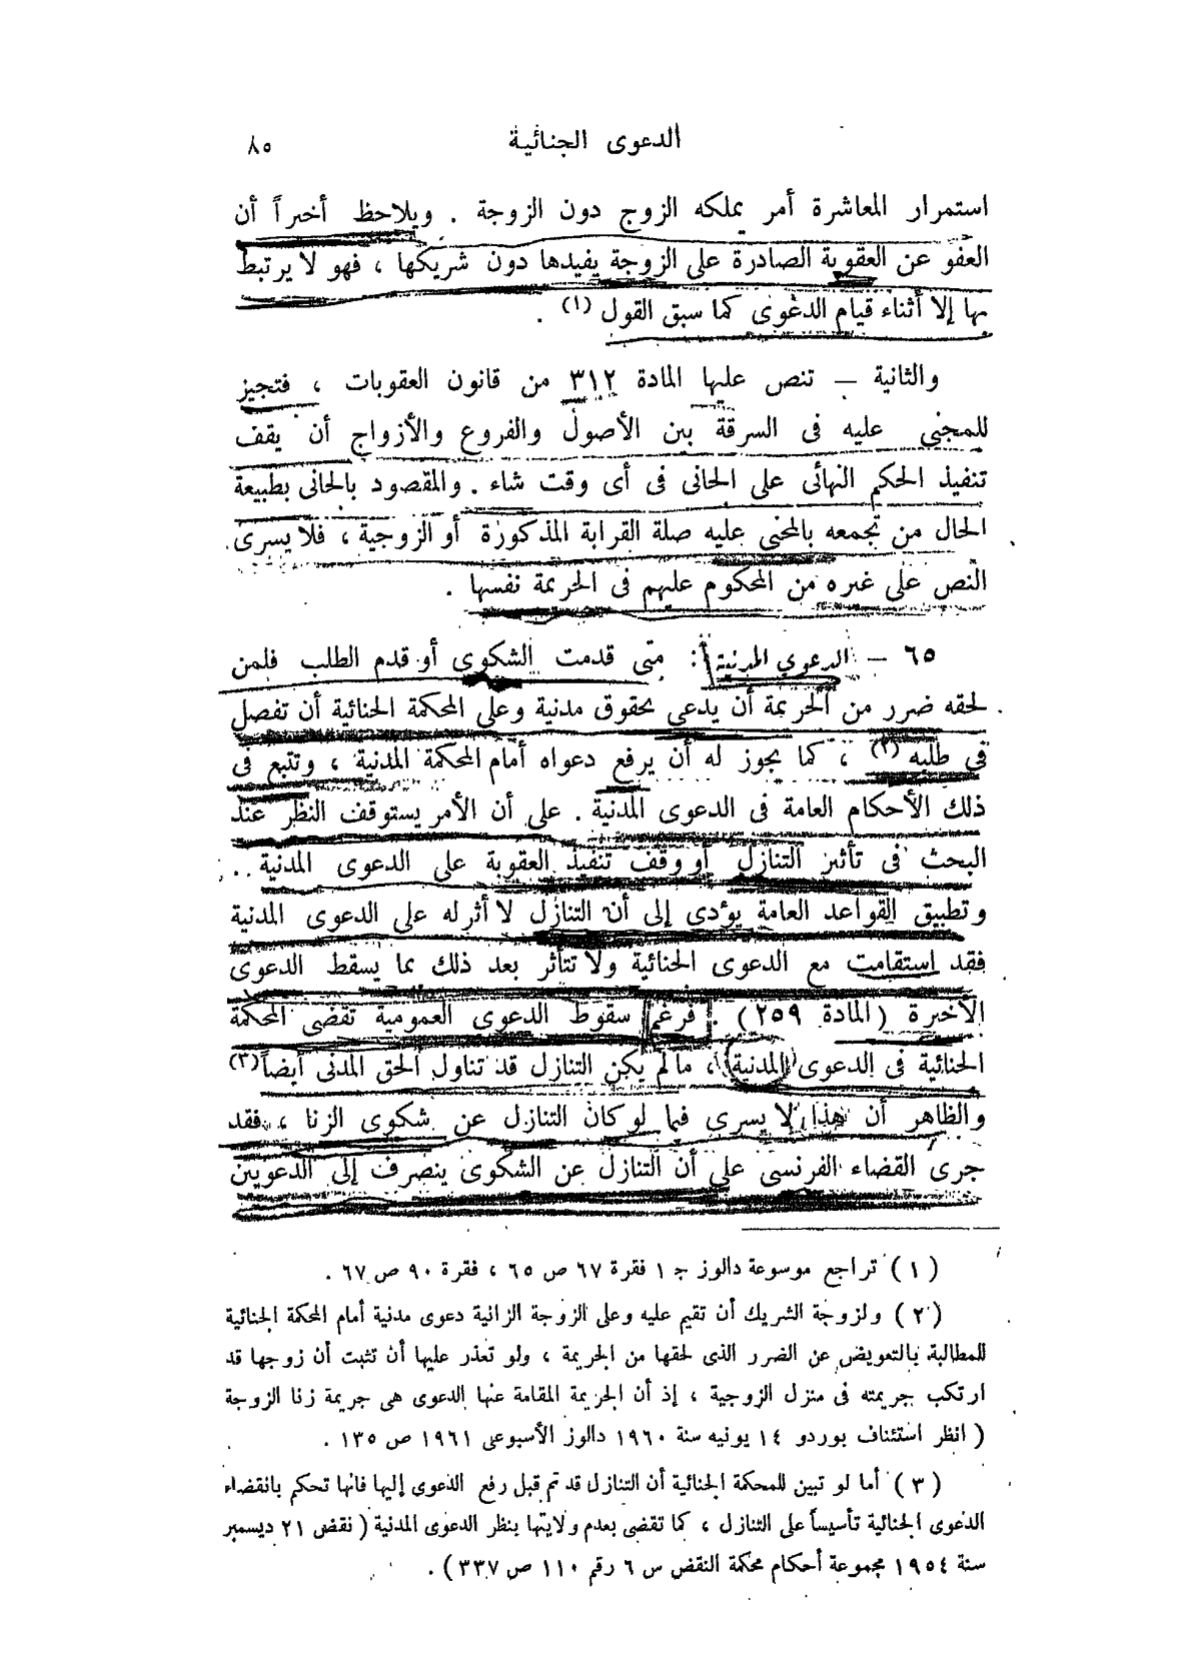 الدعوى الجنائية ٨٥
استمرار المعاشرة أمر يملكه الزوج دون الزوجة . ويلاحظ أخيراً أن
العفو عن العقوبة الصادرة على الزوجة يفيدها دون شريكها ، فهو لا يرتبط
بها إلا أثناء قيام الدعوى كما سبق القول (١) .
والثانية – تنص عليها المادة ٣١٢ من قانون العقوبات ، فتجيز
للمجنى عليه فى السرقة بين الأصول والفروع والأزواج أن يقف
تنفيذ الحكم النهائى على الجانى فى أى وقت شاء . والمقصود بالجانى بطبيعة
الحال من تجمعه بالمجنى عليه صلة القرابة المذكورة أو الزوجية ، فلا يسرى
النص على غيره من المحكوم عليهم فى الجريمة نفسها .
٦٥ – الدعوى المدنية : متى قدمت الشكوى أو قدم الطلب فلمن
لحقه ضرر من الجريمة أن يدعى بحقوق مدنية وعلى المحكمة الجنائية أن تفصل
فى طلبه (٢) ، كما يجوز له أن يرفع دعواه أمام المحكمة المدنية ، وتتبع فى
ذلك الأحكام العامة فى الدعوى المدنية . على أن الأمر يستوقف النظر عند
البحث فى تأثير التنازل أو وقف تنفيذ العقوبة على الدعوى المدنية .
وتطبيق القواعد العامة يؤدى إلى أن التنازل لا أثر له على الدعوى المدنية
فقد استقامت مع الدعوى الجنائية ولا تتأثر بعد ذلك بما يسقط الدعوى
الأخيرة (المادة ٢٥٩) . فرغم سقوط الدعوى العمومية تقضى المحكمة
الجنائية فى الدعوى المدنية ، ما لم يكن التنازل قد تناول الحق المدنى أيضاً (٣)
والظاهر أن هذا لا يسرى فيما لو كان التنازل عن شكوى الزنا ، فقد
جرى القضاء الفرنسى على أن التنازل عن الشكوى ينصرف إلى الدعويين
(١) تراجع موسوعة دالوز ج ١ فقرة ٦٧ ص ٦٥ ، فقرة ٩٠ ص ٦٧ .
(٢) ولزوجة الشريك أن تقيم عليه وعلى الزوجة الزانية دعوى مدنية أمام المحكمة الجنائية
للمطالبة بالتعويض عن الضرر الذى لحقها من الجريمة ، ولو تعذر عليها أن تثبت أن زوجها قد
ارتكب جريمته فى منزل الزوجية ، إذ أن الجريمة المقامة عنها الدعوى هى جريمة زنا الزوجة
( انظر استئناف بوردو ١٤ يونيه سنة ١٩٦٠ دالوز الأسبوعى ١٩٦١ ص ١٣٥ .
(٣) أما لو تبين للمحكمة الجنائية أن التنازل قد تم قبل رفع الدعوى إليها فانها تحكم بانقضاء
الدعوى الجنائية تأسيساً على التنازل ، كما تقضى بعدم ولايتها بنظر الدعوى المدنية ( نقض ٢١ ديسمبر
سنة ١٩٥٤ مجموعة أحكام محكمة النقض س ٦ رقم ١١٠ ص ٣٣٧ ) .